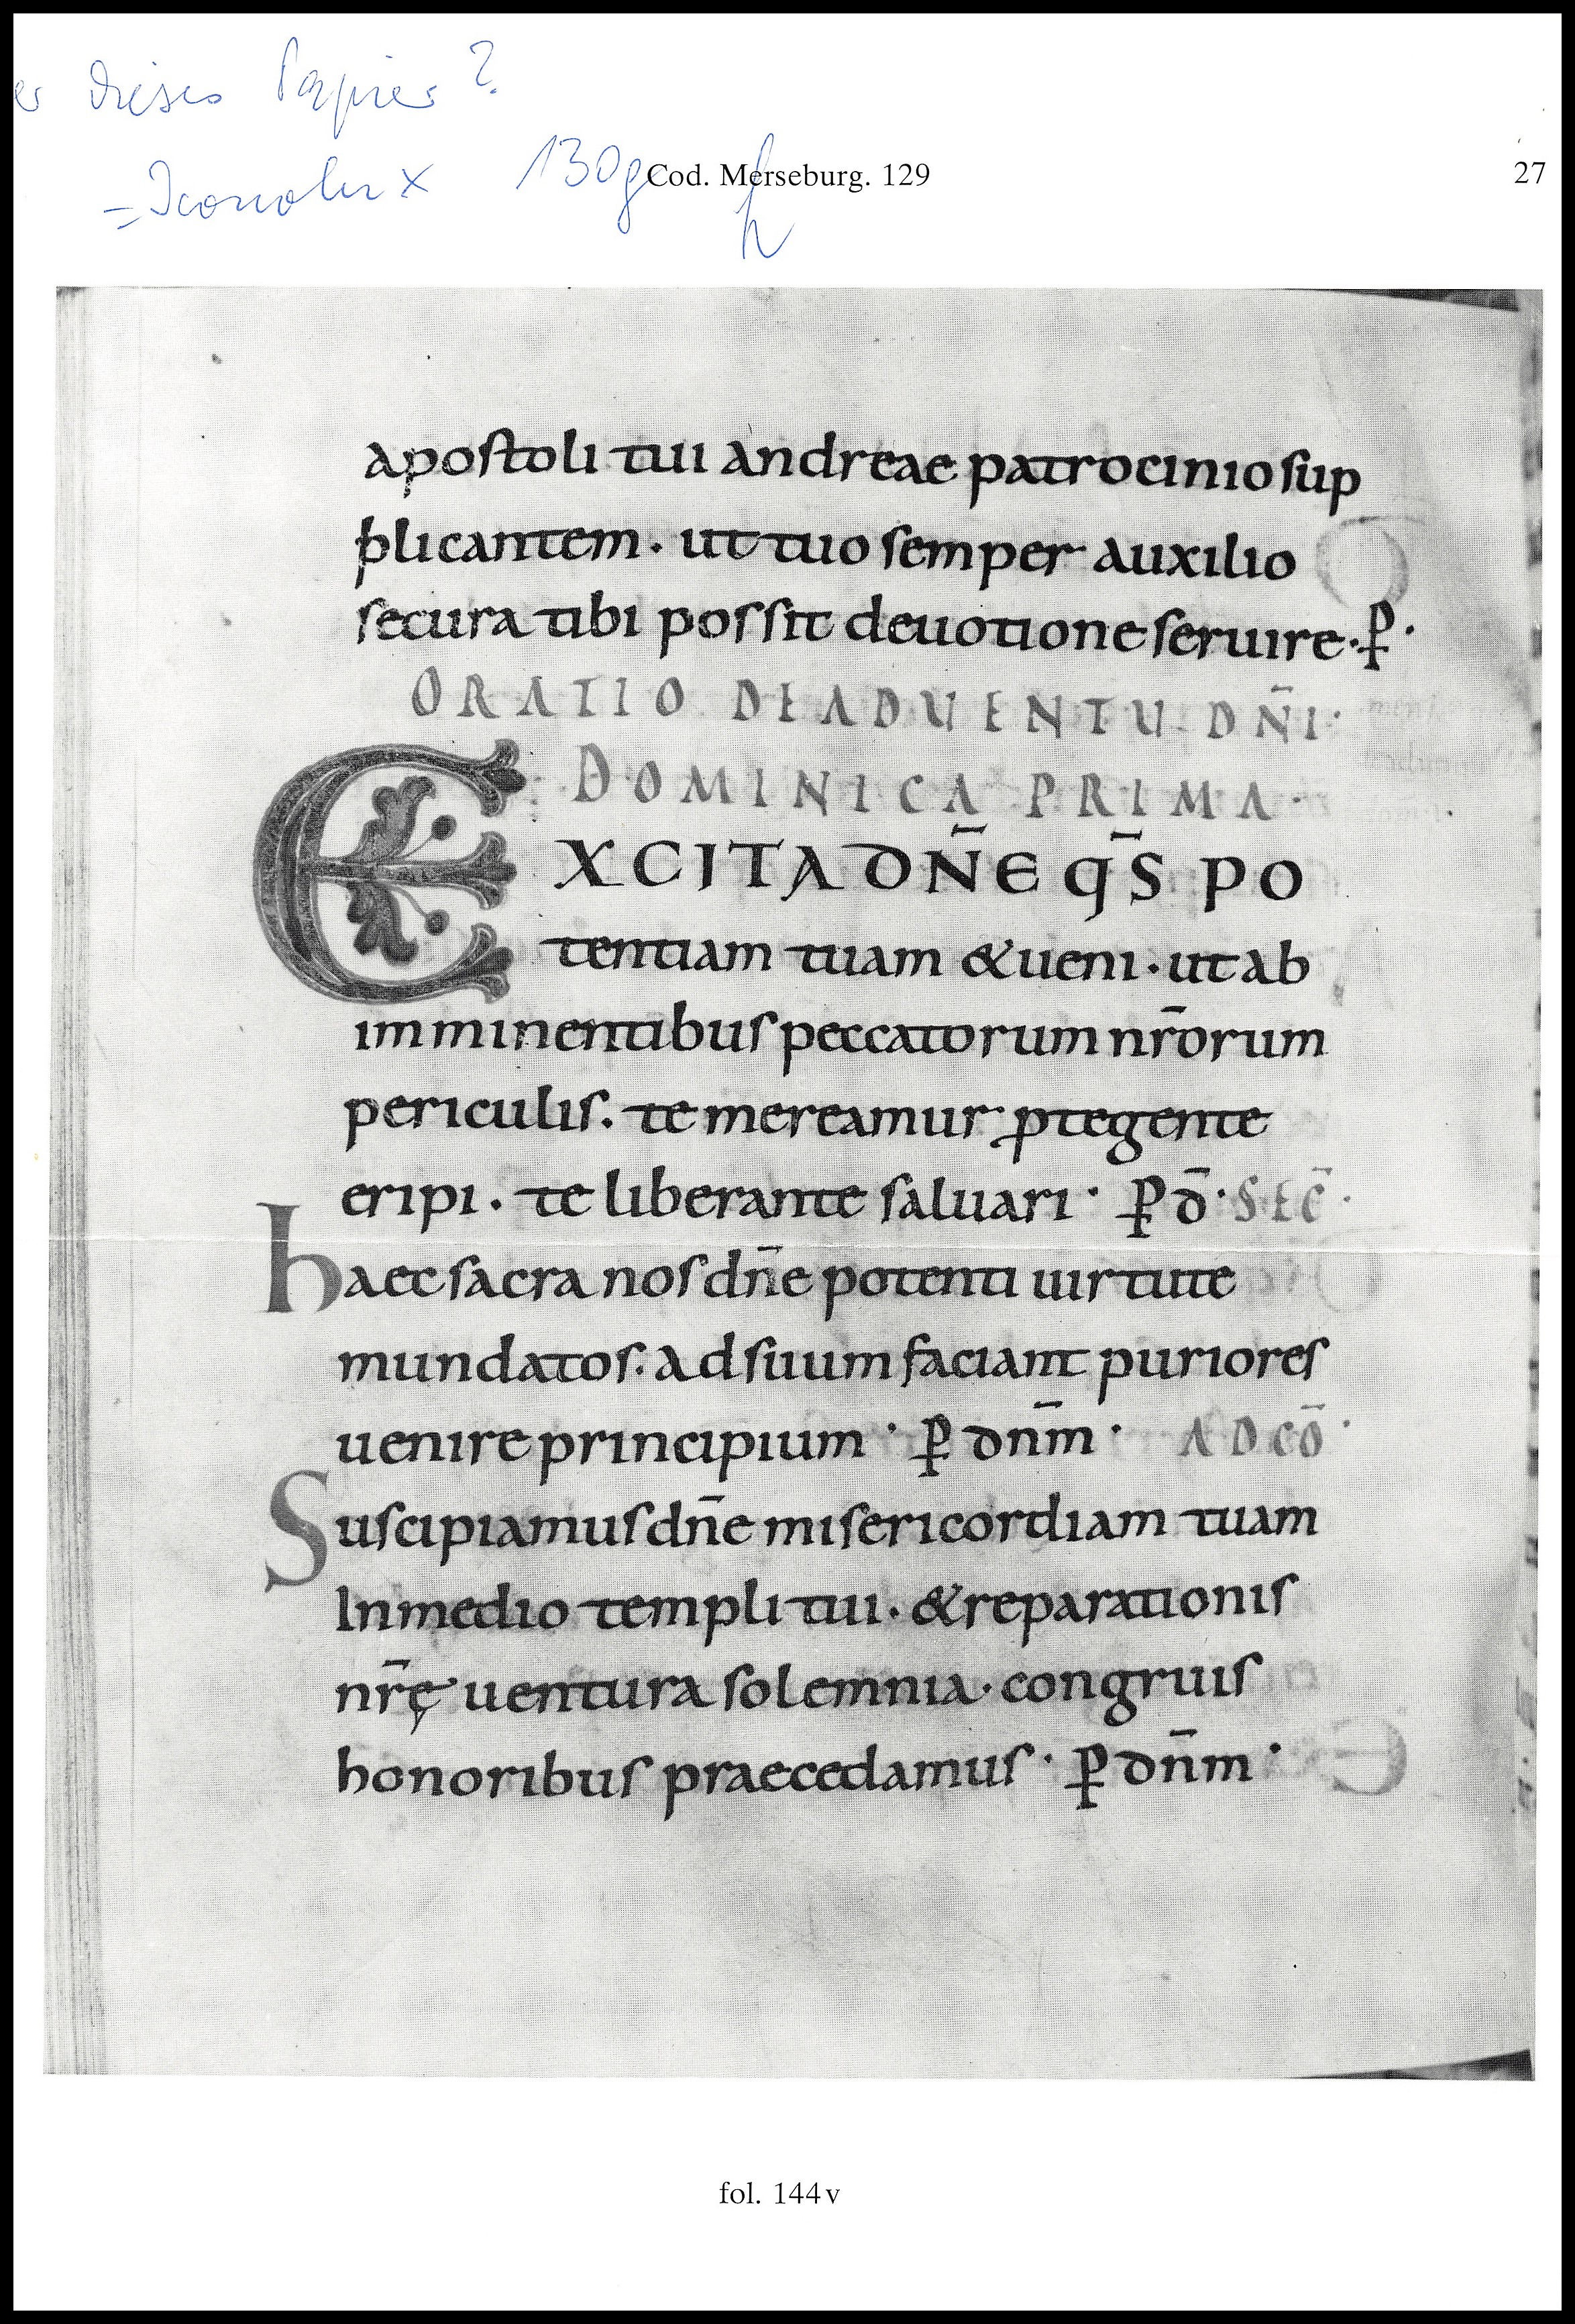 er dieses Papier?
= Iconolux 130g
Cod. Merseburg. 129
27
apostoli tui andreae patrocinio sup
plicantem. ut tuo semper auxilio
secura tibi possit deuotione seruire. P̱·
ORATIO DE ADUENTU DN̄I·
DOMINICA PRIMA·
EXCITA DN̄E QS̄ PO
tentiam tuam & ueni · ut ab
imminentibus peccatorum nr̄orum
periculis. te mereamur ꝓtegente
eripi. te liberante saluari · P̱ D̄ · SEC̄·
haec sacra nos dn̄e potenti uirtute
mundatos. ad suum faciant puriores
uenire principium · P̱ dnm̄ · AD CŌ·
Suscipiamus dn̄e misericordiam tuam
In medio templi tui. & reparationis
nr̄ę uentura solemnia · congruis
honoribus praecedamus · P̱ dnm̄ ·
fol. 144v